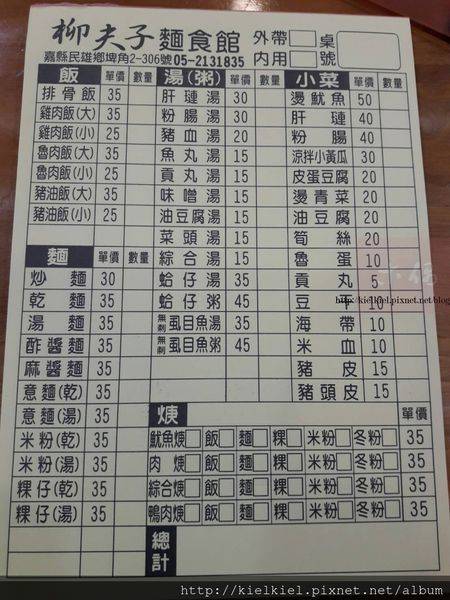 柳夫子 麵食館 外帶 桌
嘉縣民雄鄉埤角2-306號 05-2131835 內用 號
飯 單價 數量
排骨飯 35
雞肉飯(大) 35
雞肉飯(小) 25
魯肉飯(大) 35
魯肉飯(小) 25
豬油飯(大) 35
豬油飯(小) 25
麵 單價 數量
炒麵 30
乾麵 35
湯麵 35
酢醬麵 35
麻醬麵 35
意麵(乾) 35
意麵(湯) 35
米粉(乾) 35
米粉(湯) 35
粿仔(乾) 35
粿仔(湯) 35
湯(粥) 單價 數量
肝璉湯 30
粉腸湯 30
豬血湯 20
魚丸湯 15
貢丸湯 15
味噌湯 15
油豆腐湯 15
菜頭湯 15
綜合湯 15
蛤仔湯 35
蛤仔粥 45
無刺虱目魚湯 35
無刺虱目魚粥 45
小菜 單價 數量
燙魷魚 50
肝璉 40
粉腸 40
涼拌小黃瓜 30
皮蛋豆腐 20
燙青菜 20
油豆腐 20
筍絲 20
魯蛋 10
貢丸 5
豆干
海帶 10
米血 10
豬皮 15
豬頭皮 15
焿 單價
魷魚焿 飯 麵 粿 米粉 冬粉 35
肉焿 飯 麵 粿 米粉 冬粉 35
綜合焿 飯 麵 粿 米粉 冬粉 35
鴨肉焿 飯 麵 粿 米粉 冬粉 35
總計
http://kielkiel.pixnet.net/blog
http://kielkiel.pixnet.net/album